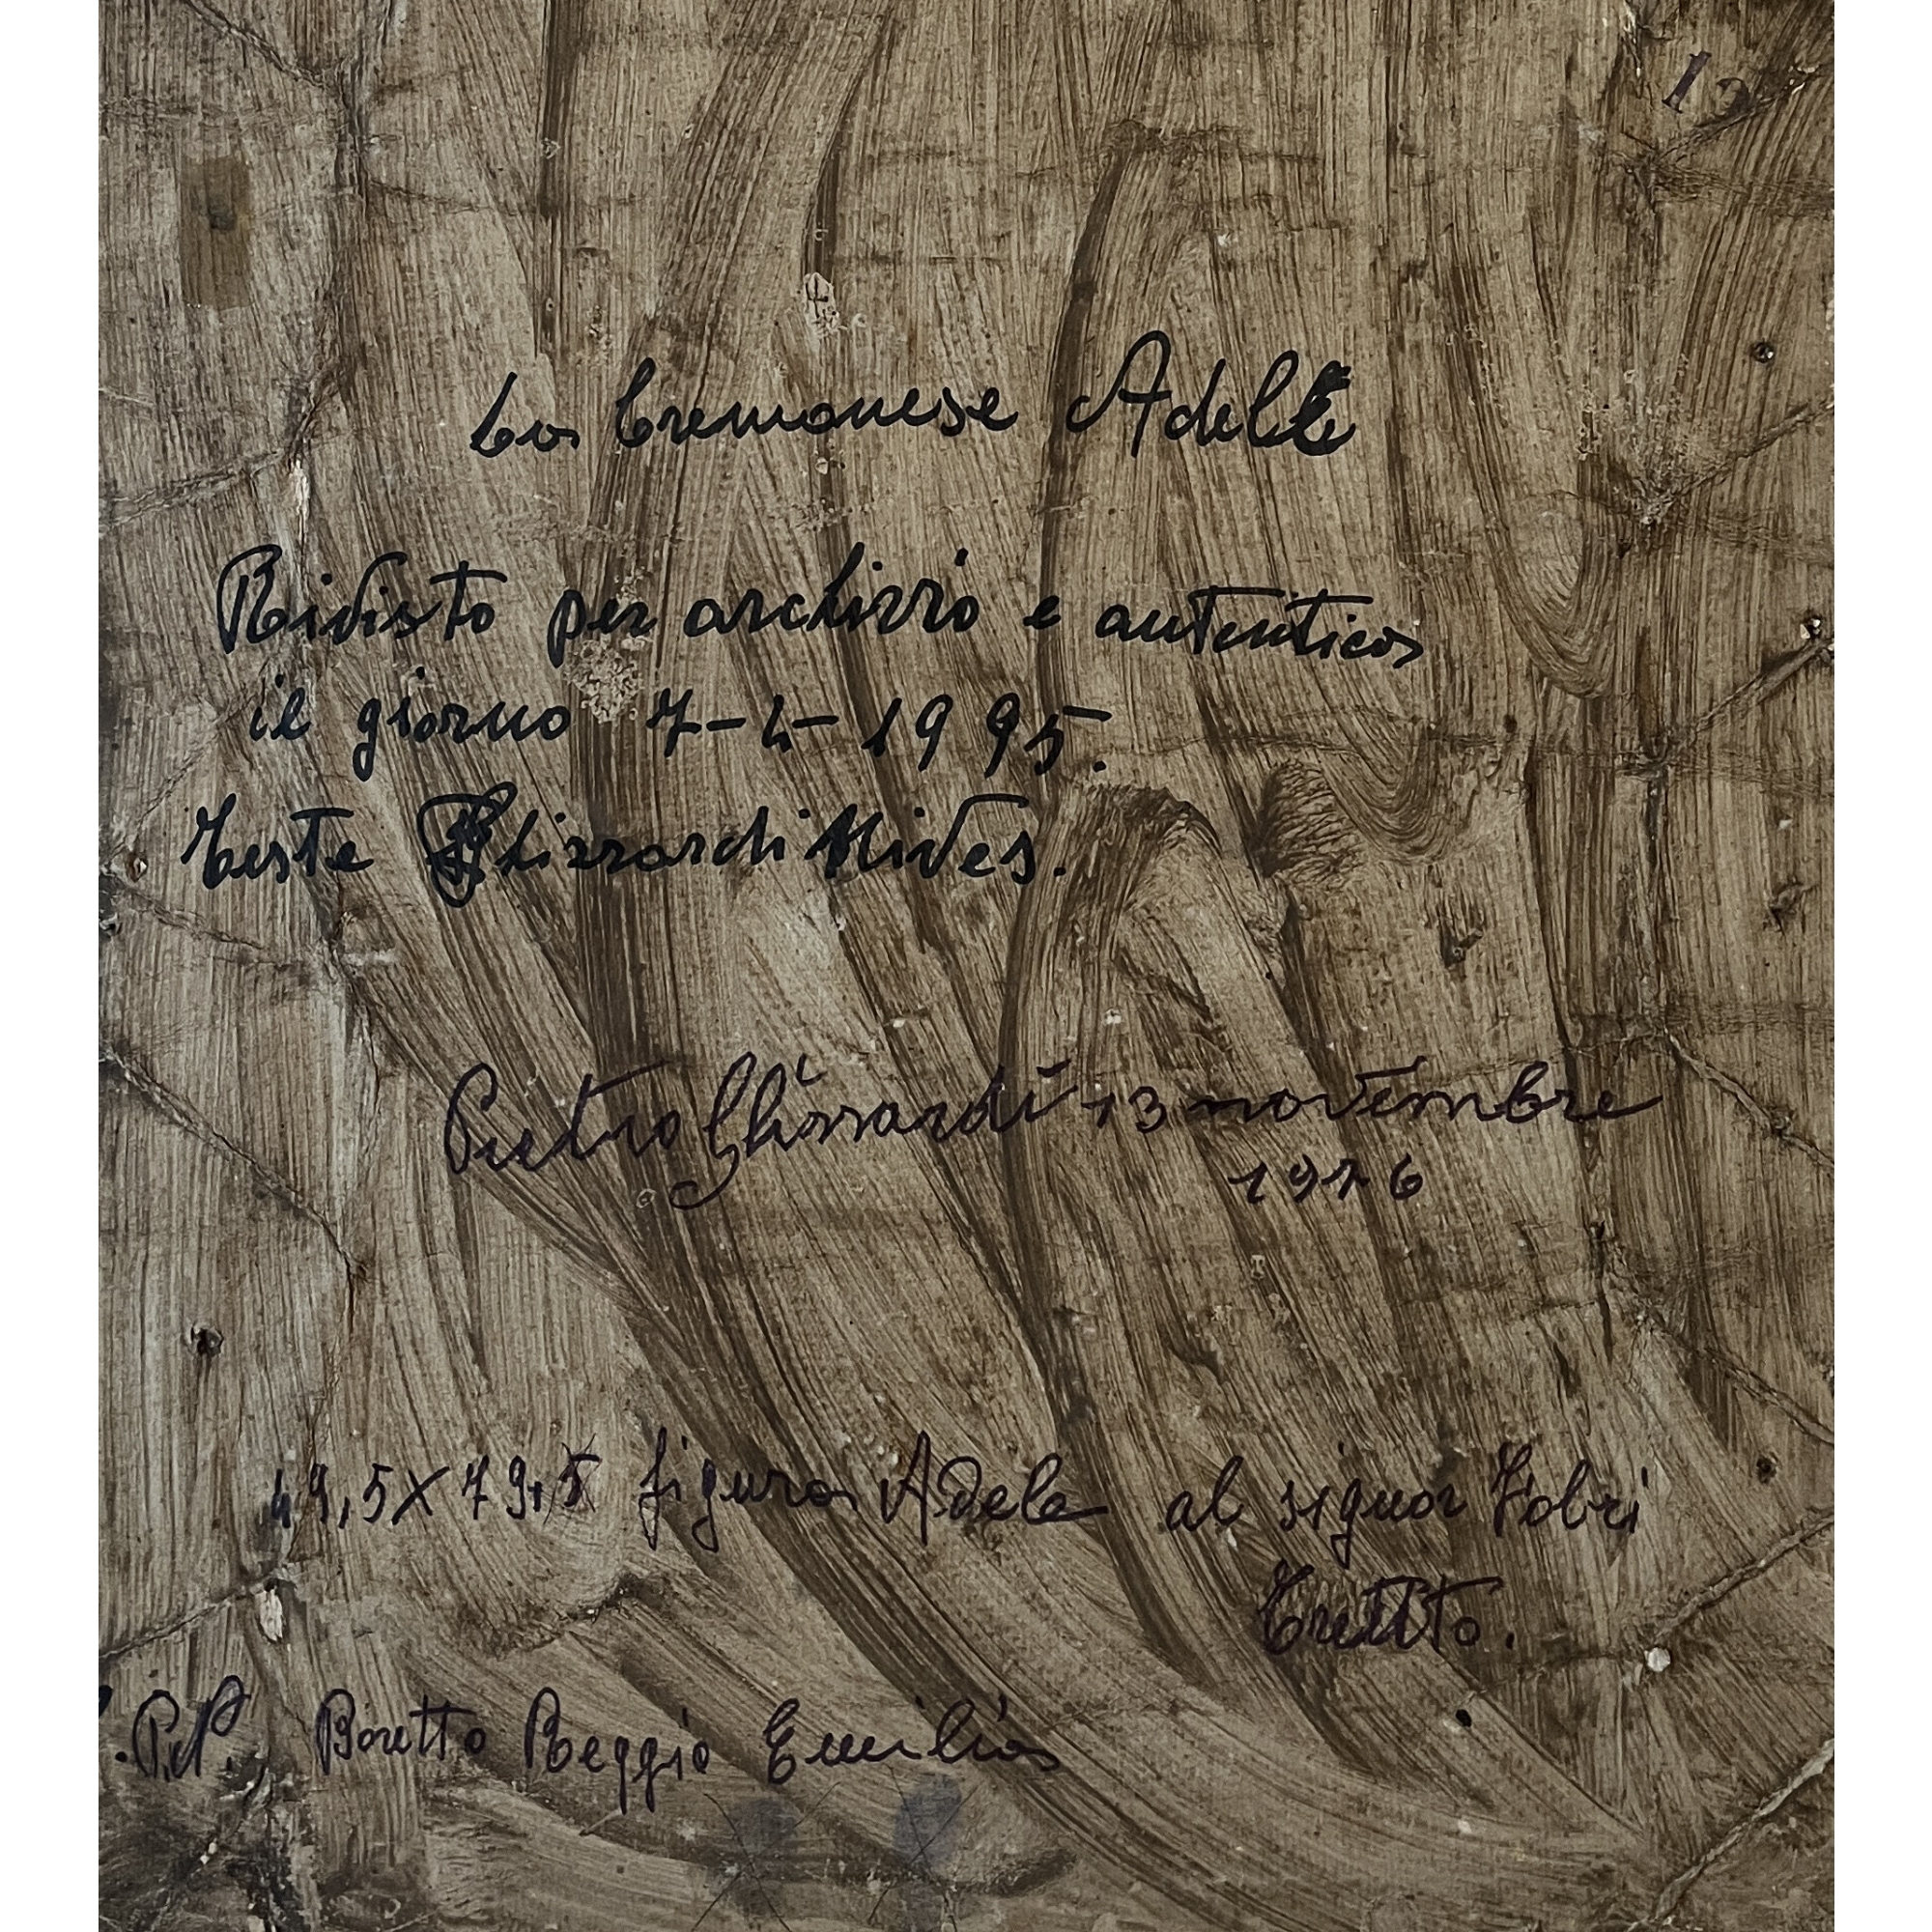 12
La Cremonese Adele
Rivisto per archivio e autentica
il giorno 7-4-1995.
Teste Ghizzardi Nives.
Pietro Ghizzardi 13 novembre
1976
49,5X79,5 figura Adela al signor
P.P., Boretto Reggio Emilia